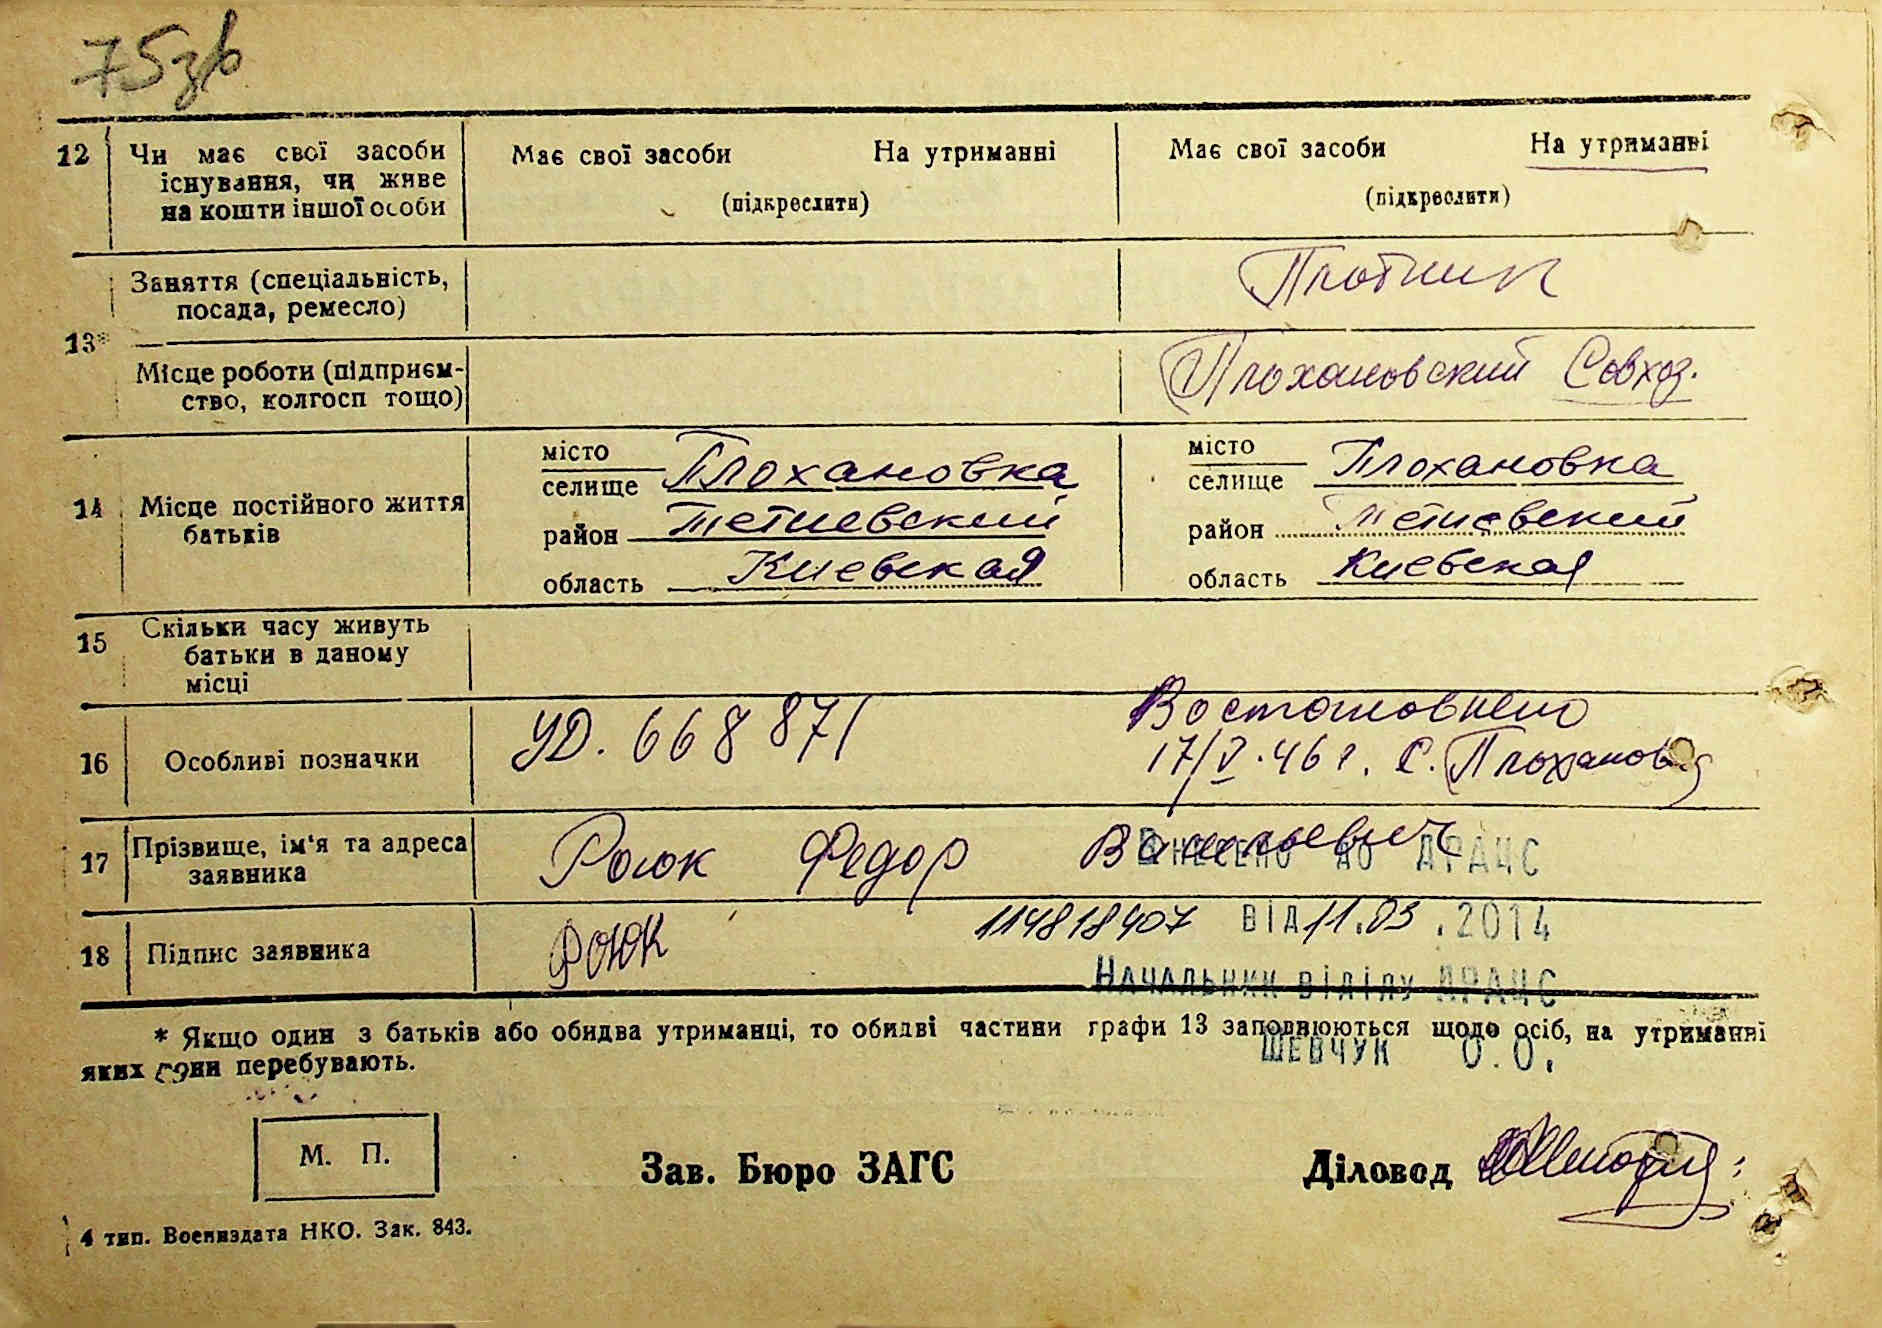 75зв
12 Чи має свої засоби існування, чи живе на кошти іншої особи
Має свої засоби На утриманні
(підкреслити)
Має свої засоби На утриманні
(підкреслити)
13* Заняття (спеціальність, посада, ремесло)
Плотник
Місце роботи (підприємство, колгосп тощо)
Плохановский Совхоз.
14 Місце постійного життя батьків
місто
селище Плохановка
район Тетиевский
область Киевская
місто
селище Плохановка
район Тетиевский
область Киевская
15 Скільки часу живуть батьки в даному місці
16 Особливі позначки
УД. 668871
Востановлено
17/V.46 г. С. Плоханов
17 Прізвище, ім'я та адреса заявника
Роюк Федор Васильевич
Внесено до ДРАЦС
18 Підпис заявника
Роюк
114818407 від 11.03.2014
Начальник відділу ДРАЦС
Шевчук О.О.
* Якщо один з батьків або обидва утриманці, то обидві частини графи 13 заповнюються щодо осіб, на утриманні
яких вони перебувають.
М. П.
Зав. Бюро ЗАГС
Діловод
4 тип. Воениздата НКО. Зак. 843.